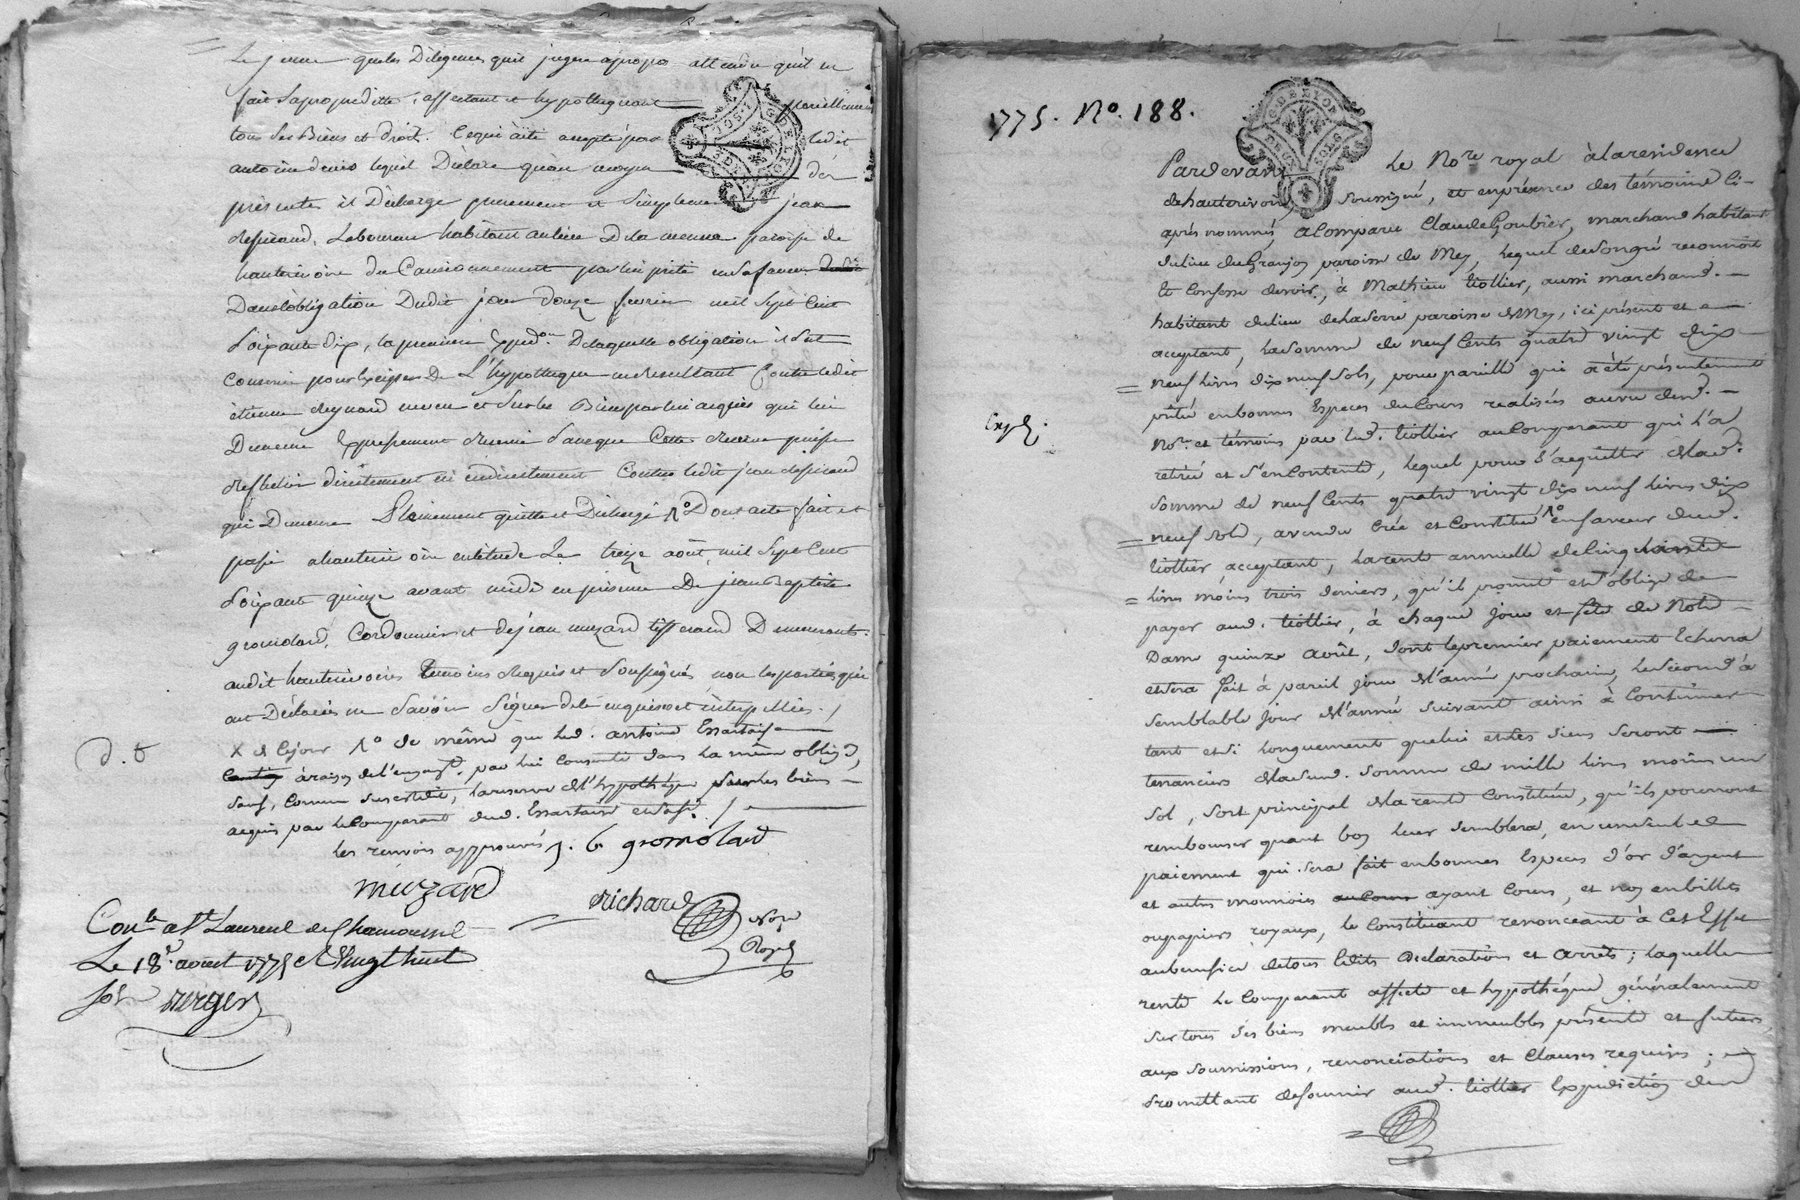 Le jeune que les Diligences quil jugera apropos attendu quil en
fait sa propre dette, affectant et hypothequant pareillement
tous ses Biens et droit. Ce qui a été accepté par ledit
antoine denis lequel Déclare qu'au moyen des
présentes il Décharge purement et simplement jean
Laboureur habitant au lieu De la meme paroisse de
hauterivoire du Cautionnement par lui prêté en sa faveur
Dans l'obligation Dudit jour Douze fevrier mil Sept Cent
Soixante dix, la premiere Expedon. De laquelle obligation il s'est
pour De L'hypotheque en resultant Contre ledit
étienne et sur les Biens par lui acquis qui lui
Demeure Expressement reservé sans que Cette reserve puisse
reflechir directement ni indirectement Contre ledit jean
qui Demeure Pleinement quitte et Déchargé Dont acte fait et
passé a hauterivoire en etude Le treize août mil Sept Cent
Soixante quinze avant midi en présence De jean Baptiste
gromolard, Cordonnier et de jean muzard tisserand Demeurants
audit hauterivoire temoins Requis et Soussignés, non les parties qui
ont Déclarées ne Savoir Signer de ce enquises et interpellées. /
X de même que led. antoine Essartaise
à raison de l'engagt. par lui consenti dans la même obligon,
sauf, comme susest dit, la reserve de l'hypothéque sur les biens
acquis par le Comparant dud. /
les renvois approuvés J. B gromolard
muzard
richard
Nore
Royal
Con.le a St Laurent de Chamousset
Le 18e. aoust 1775 R Vingt huit
sols verger
1775. No. 188.
G. DE LYON
DEUX SOLS
Pardevant Le Nore royal à la residence
de hauterivoire, soussigné, et en présence des témoins ci-
après nommés, a Comparu Claude Goubier, marchand habitant
du lieu du Granjon paroisse de Mey, lequel de son gré reconnoit
et Confesse devoir, à Mathieu tiollier, aussi marchand.
habitant du lieu de la Serre paroisse de Mey, ici présent et
acceptant, la somme de neuf Cents quatre vingt dix
neuf livres dix neuf sols, pour pareille qui a été présentement
prêté en bonnes Especes du Cours realisées au vu dud.
Nore et témoins par led. tiollier au Comparant qui l'a
Exp.
retiré et s'en Contente, lequel pour s'acquitter de lad.
somme de neuf Cents quatre vingt dix neuf livres dix
neuf sols, a vendu Crée et Constitué en faveur dud.
tiollier acceptant, la rente annuelle de Cinquante
livres moins trois deniers, qu'il promet et s'oblige de
payer aud. tiollier, à chaque jour et fête de Notre
Dame quinze Août, dont le premier paiement Echerra
et sera fait à pareil jour de l'année prochaine, le second à
semblable jour de l'année suivante ainsi à Continuer
tant et si longuement que lui et les siens seront
tenanciers de lad. somme de mille livres moins un
sol, sort principal de la rente Constituée, qu'ils pourront
rembourser quant bon leur semblera, en un seul
paiement qui sera fait en bonnes Especes d'or d'argent
et autres monnoies au Cours ayant Cours, et non en billets
ou papiers royaux, le Constituant renonceant à Cet Effet
au benefice de tous Edits Declarations et arrêts; laquelle
rente le Comparant affecte et hypothéque généralement
sur tous ses biens meubles et immeubles présents et futurs,
aux soumissions, renonciations et Clauses requises;
promettant de fournir aud. tiollier Expédiction du